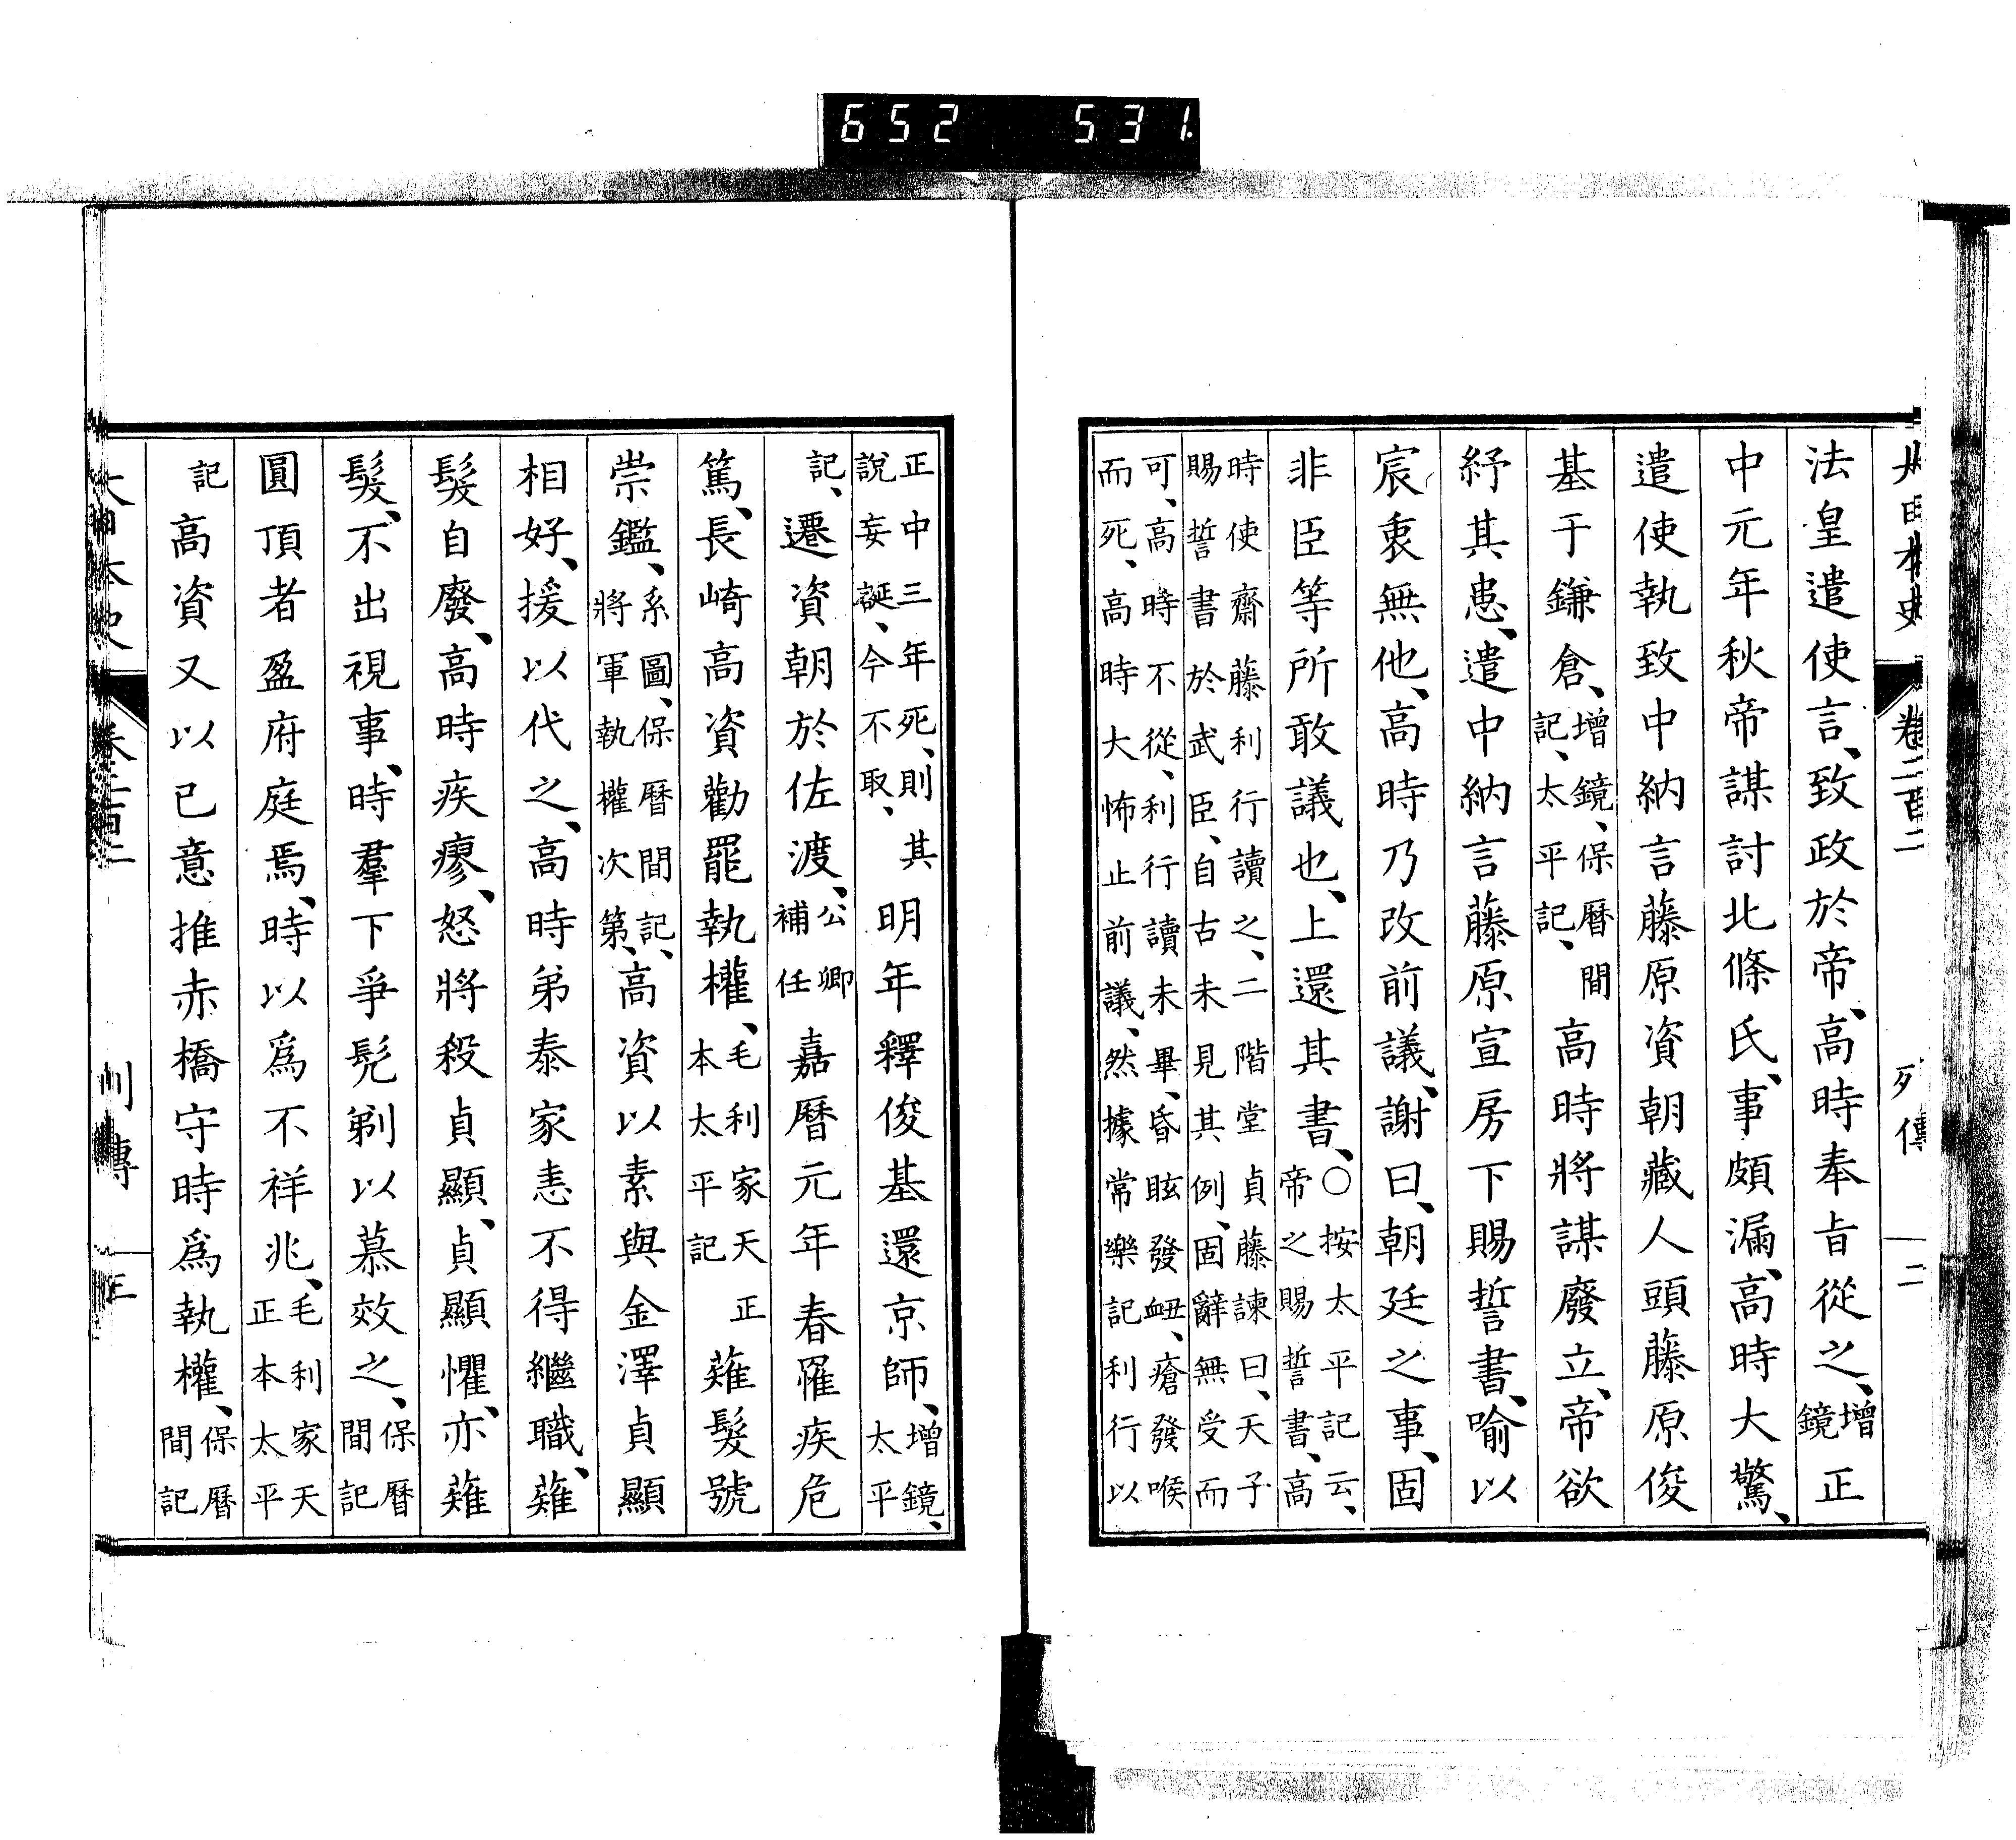 652 531.
大日本史 卷二百二 列傳 二
法皇遣使言、致政於帝、高時奉旨從之、增鏡正
中元年秋帝謀討北條氏、事頗漏、高時大驚、
遣使執致中納言藤原資朝藏人頭藤原俊
基于鎌倉、增鏡、保曆間記、太平記、高時將謀廢立、帝欲
紓其患、遣中納言藤原宣房下賜誓書、喻以
宸衷無他、高時乃改前議、謝曰、朝廷之事、固
非臣等所敢議也、上還其書、○按太平記云、帝之賜誓書、高
時使齋藤利行讀之、二階堂貞藤諫曰、天子賜誓書於武臣、自古未見其例、固辭無受而
可、高時不從、利行讀未畢、昏眩發衄、瘡發喉而死、高時大怖止前議、然據常樂記利行以
正中三年死、則其說妄誕、今不取、明年釋俊基還京師、增鏡、太平
記、遷資朝於佐渡、公卿補任嘉曆元年春罹疾危
篤、長崎高資勸罷執權、毛利家天正本太平記薙髮號
崇鑑、系圖、保曆間記、將軍執權次第、高資以素與金澤貞顯
相好、援以代之、高時弟泰家恚不得繼職、薙
髮自廢、高時疾瘳、怒將殺貞顯、貞顯懼、亦薙
髮、不出視事、時羣下爭髠剃以慕效之、保曆間記
圓頂者盈府庭焉、時以爲不祥兆、毛利家天正本太平
記高資又以己意推赤橋守時爲執權、保曆間記
大日本史 卷二百二 列傳 三